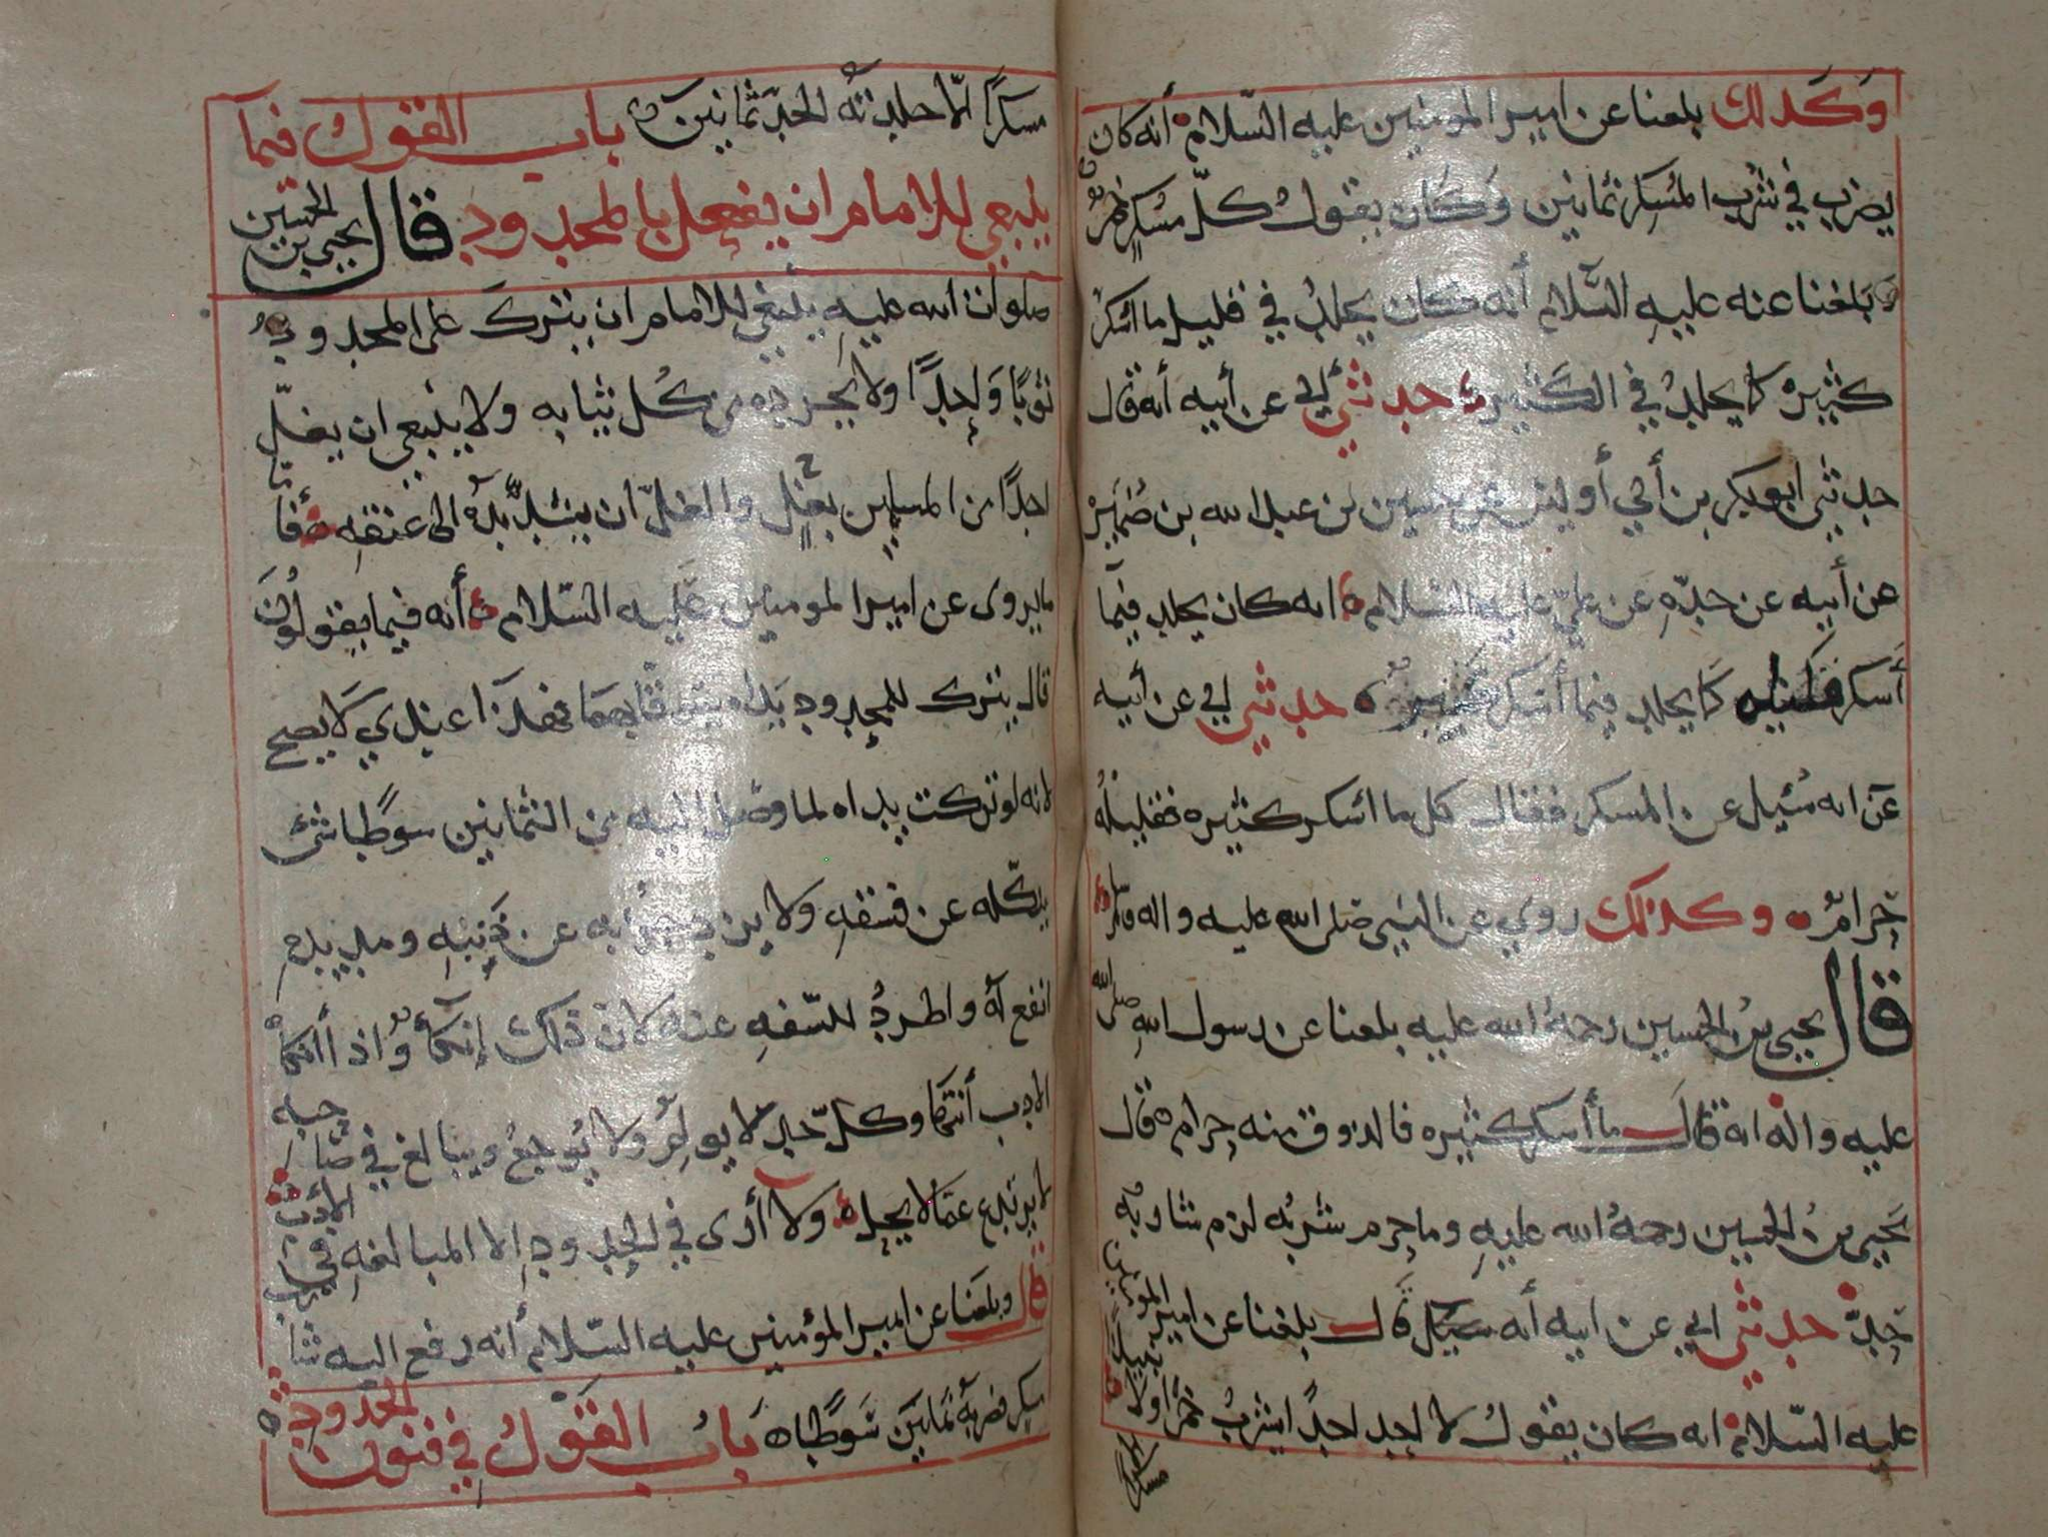 وكذلك بلغنا عن امير المومنين عليه السلام أنه كان
يضرب في شرب المسكر ثمانين وكان يقول كل مسكر خمر
وبلغنا عنه عليه السلام أنه كان يجلد في قليل ما اسكر
كثيره كما يجلد في الكثير حدثني أبي عن أبيه أنه قال
حدثني ابو بكر بن أبي أويس عن حسين بن عبد الله بن ضميره
عن أبيه عن جده عن علي عليه السلام انه كان يجلد فيما
أسكر قليله كما يجلد فيما أسكر كثيره حدثني ابي عن أبيه
عن انه سئيل عن المسكر فقال كل ما اسكر كثيره فقليله
حرام وكذلك روي عن النبي صلى الله عليه واله وسلم
قال يحيى بن الحسين رحمة الله عليه بلغنا عن رسول الله صلى الله
عليه واله انه قال ما أسكر كثيره فالذوق منه حرام قال
يحيى بن الحسين رحمة الله عليه وما حرم شربه لزم شاربه
حد حدثني ابي عن ابيه أنه سئل قال بلغنا عن امير المومنين
عليه السلام انه كان يقول لا اجد احدا يشرب خمرا ولا نبيذا
مسكرا الا جلدته الحد ثمانين باب القول فيما
ينبغي للامام ان يفعل بالمحدود قال يحيى بن الحسين
صلوات الله عليه ينبغي للامام ان يترك على المحدود
ثوبا واحدا ولا يجرده من كل ثيابه ولا ينبغي ان يغل
احدا من المسلمين بغل والغل ان يشد يده الى عنقه فأما
ما يروى عن امير المومنين عليه السلام أنه فيما يقولون
قال يترك للمحدود يداه يتوقا بهما فهذا عندي لا يصح
لانه لو تركت يداه لما وصل اليه من الثمانين سوطا شي
ينكله عن فسقه ولا يزدجر به عن ذنبه ومد يده
انفع له واطرد للسفه عنه كان ذلك إنكأ واذا أنكأ
الادب أنتها وكل حد لا يولم ولا يوجع ويبالغ في صاحبه
لا يرتدع عما لا يحل ولا أرى في الحدود الا المبالغه في الأدب
قال وبلغنا عن امير المؤمنين عليه السلام أنه رفع اليه شارب
مسكر فضربه ثمانين سوطا باب القول في فنون الحدود